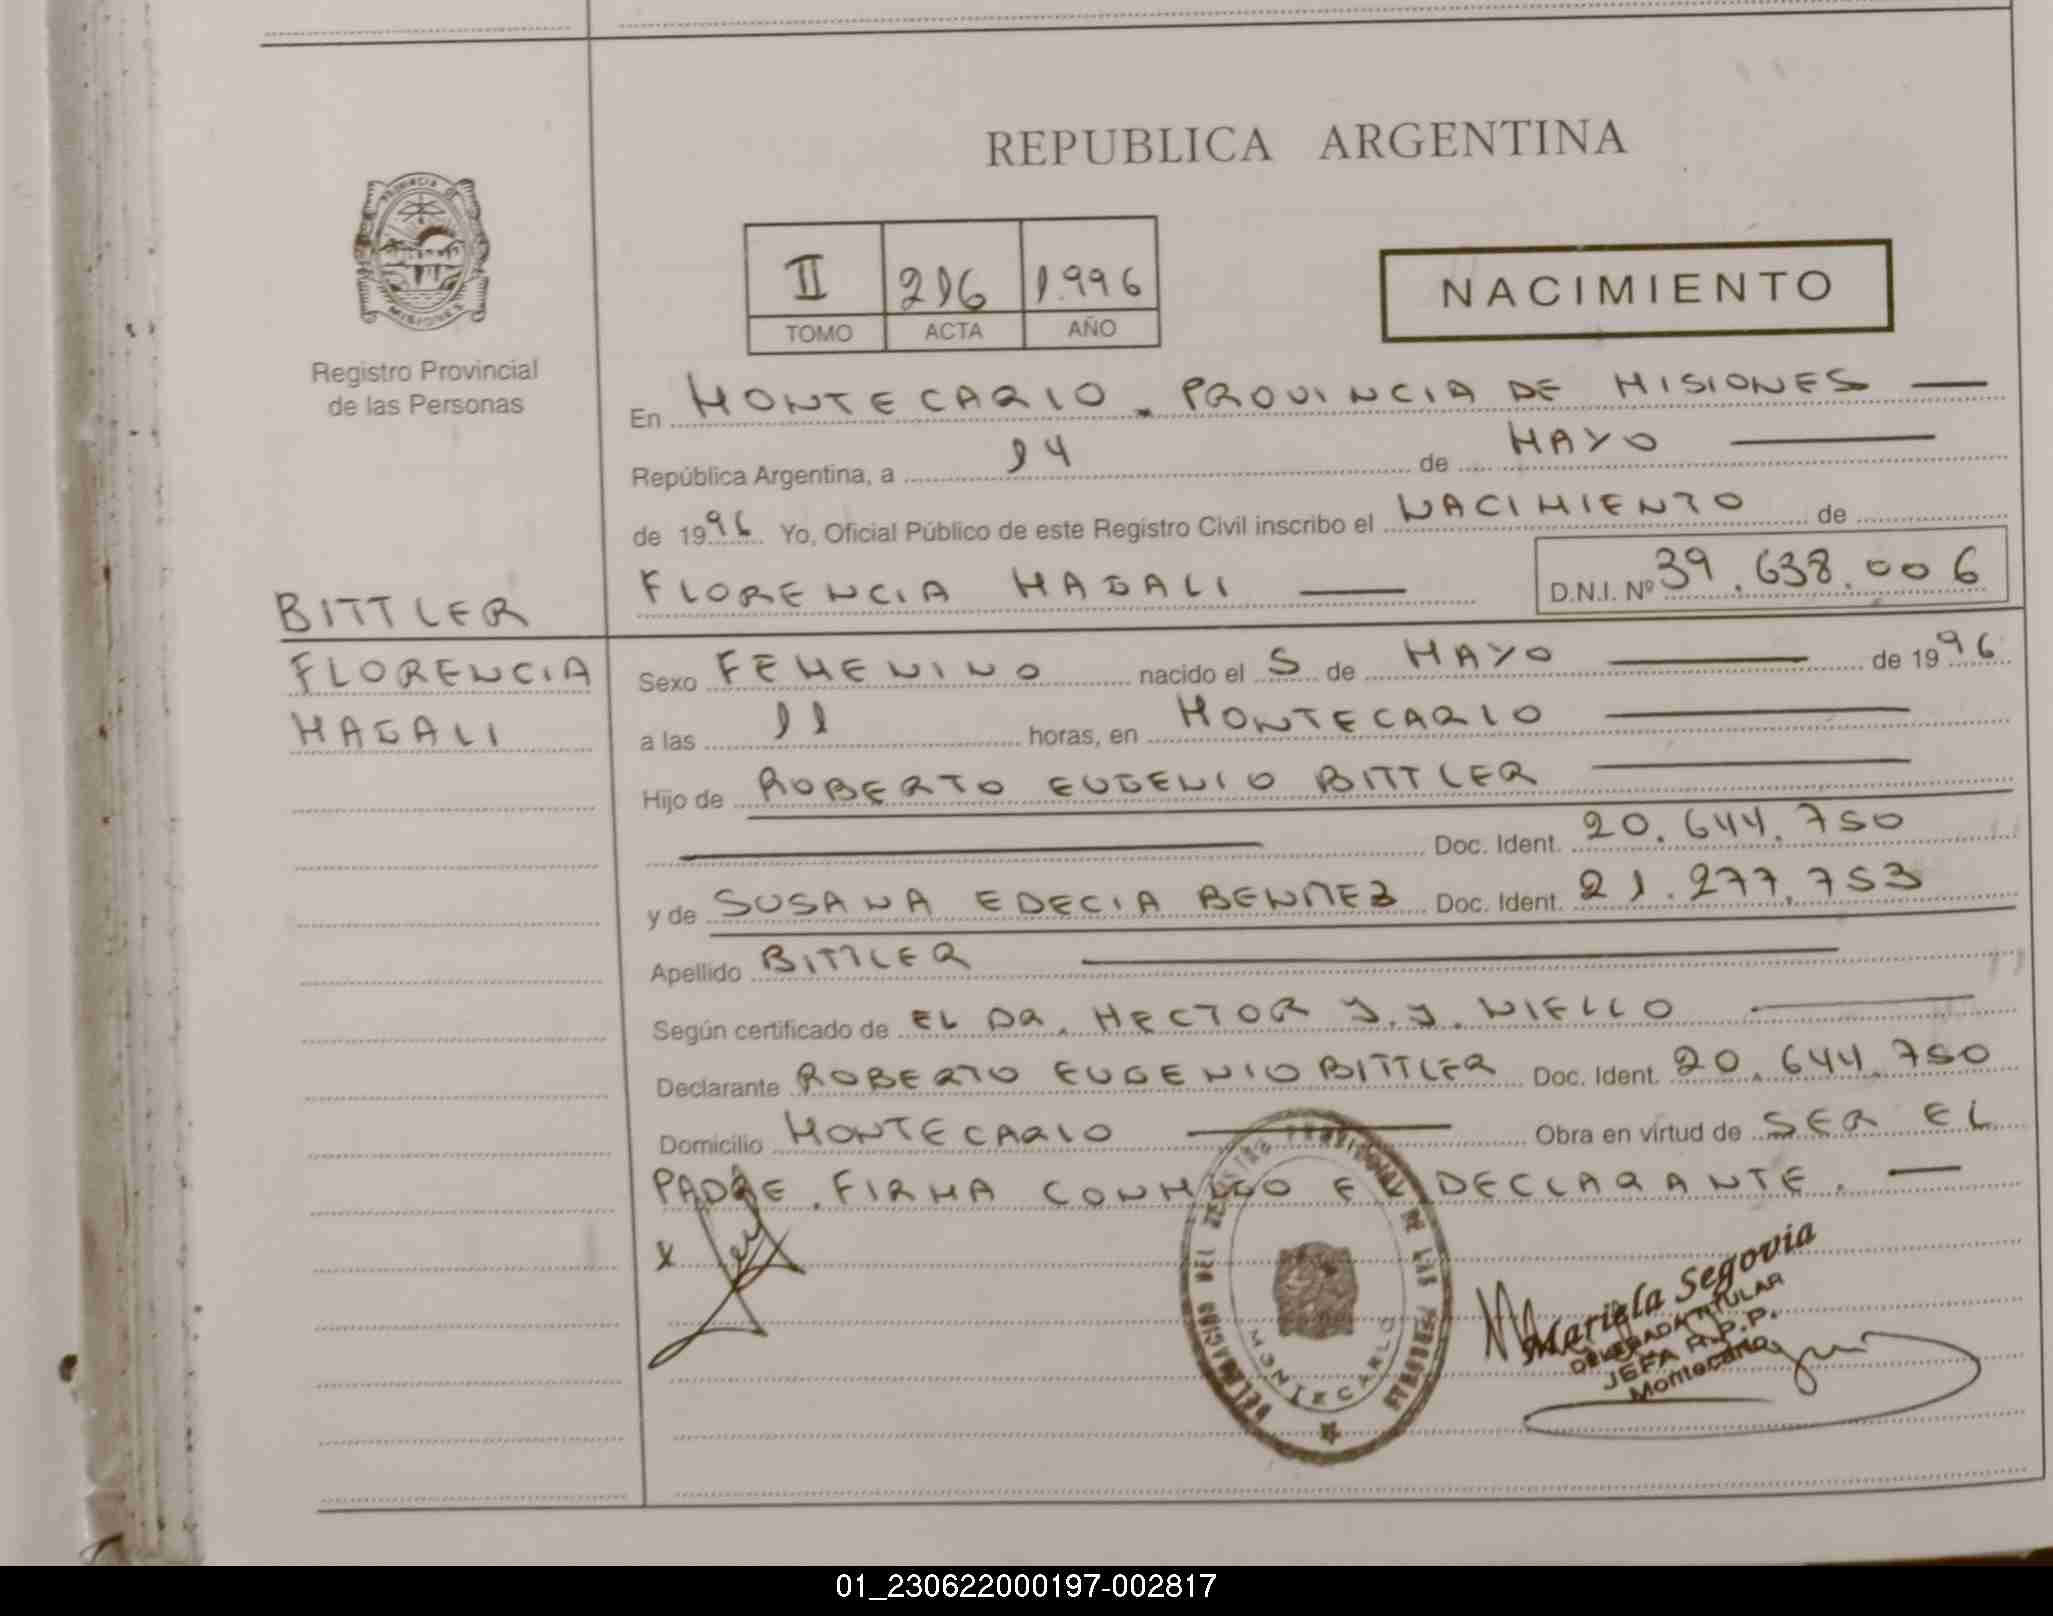 REPUBLICA ARGENTINA
PROVINCIA DE
MISIONES
Registro Provincial
de las Personas
II 216 1.996
TOMO ACTA AÑO
NACIMIENTO
En MONTECARLO. PROVINCIA DE MISIONES
República Argentina, a 14 de MAYO
de 1996 Yo, Oficial Público de este Registro Civil inscribo el NACIMIENTO de
FLORENCIA MAGALI D.N.I. Nº 39.638.006
BITTLER
FLORENCIA
MAGALI
Sexo FEMENINO nacido el 5 de MAYO de 1996
a las 11 horas, en MONTECARLO
Hijo de ROBERTO EUGENIO BITTLER
Doc. Ident. 20.644.750
y de SUSANA EDECIA BENITEZ Doc. Ident. 21.277.753
Apellido BITTLER
Según certificado de EL DR. HECTOR J.J. NIELLO
Declarante ROBERTO EUGENIO BITTLER Doc. Ident. 20.644.750
Domicilio MONTECARLO Obra en virtud de SER EL
PADRE. FIRMA CONMIGO EL DECLARANTE.
x
DELEGACION DEL REGISTRO PROVINCIAL DE LAS PERSONAS
MONTECARLO
Mariela Segovia
DELEGADA TITULAR
JEFA R.P.P.
Montecarlo
01_230622000197-002817